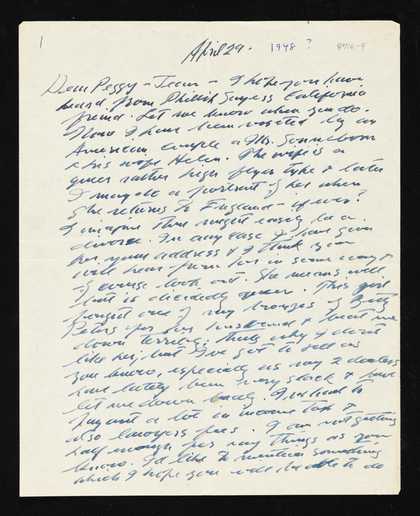 1
April 29.
1948 ?
Dear Peggy – Jean – I hope you have
heard from Phillis California
friend. Let me know when you do.
Now I have been visited by an
American couple a Mr. Sonnebom
& his wife Helen. The wife is a
queer rather high flyer type & later
I may do a portrait of her when
she returns to England – if ever?
I imagine there might easily be a
divorce. In any case I have given
her your address & I think you
will hear from her in some way &
of course look out. She means well
but is decidedly queer. This girl
bought one of my bronzes of Betty
Peters for her husband & beat me
down terribly; that's why I don't
like her, but I've got to sell as
you know, especially as my 2 dealers
have lately been very slack & have
let me down badly. I've had to
pay out a lot in income tax &
also lawyers fees. I am not getting
half enough for my things as you
know. I'd like to mention something
which I hope you will be able to do